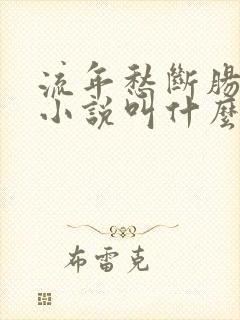 流年愁斷腸
小說叫什麼
布雷克